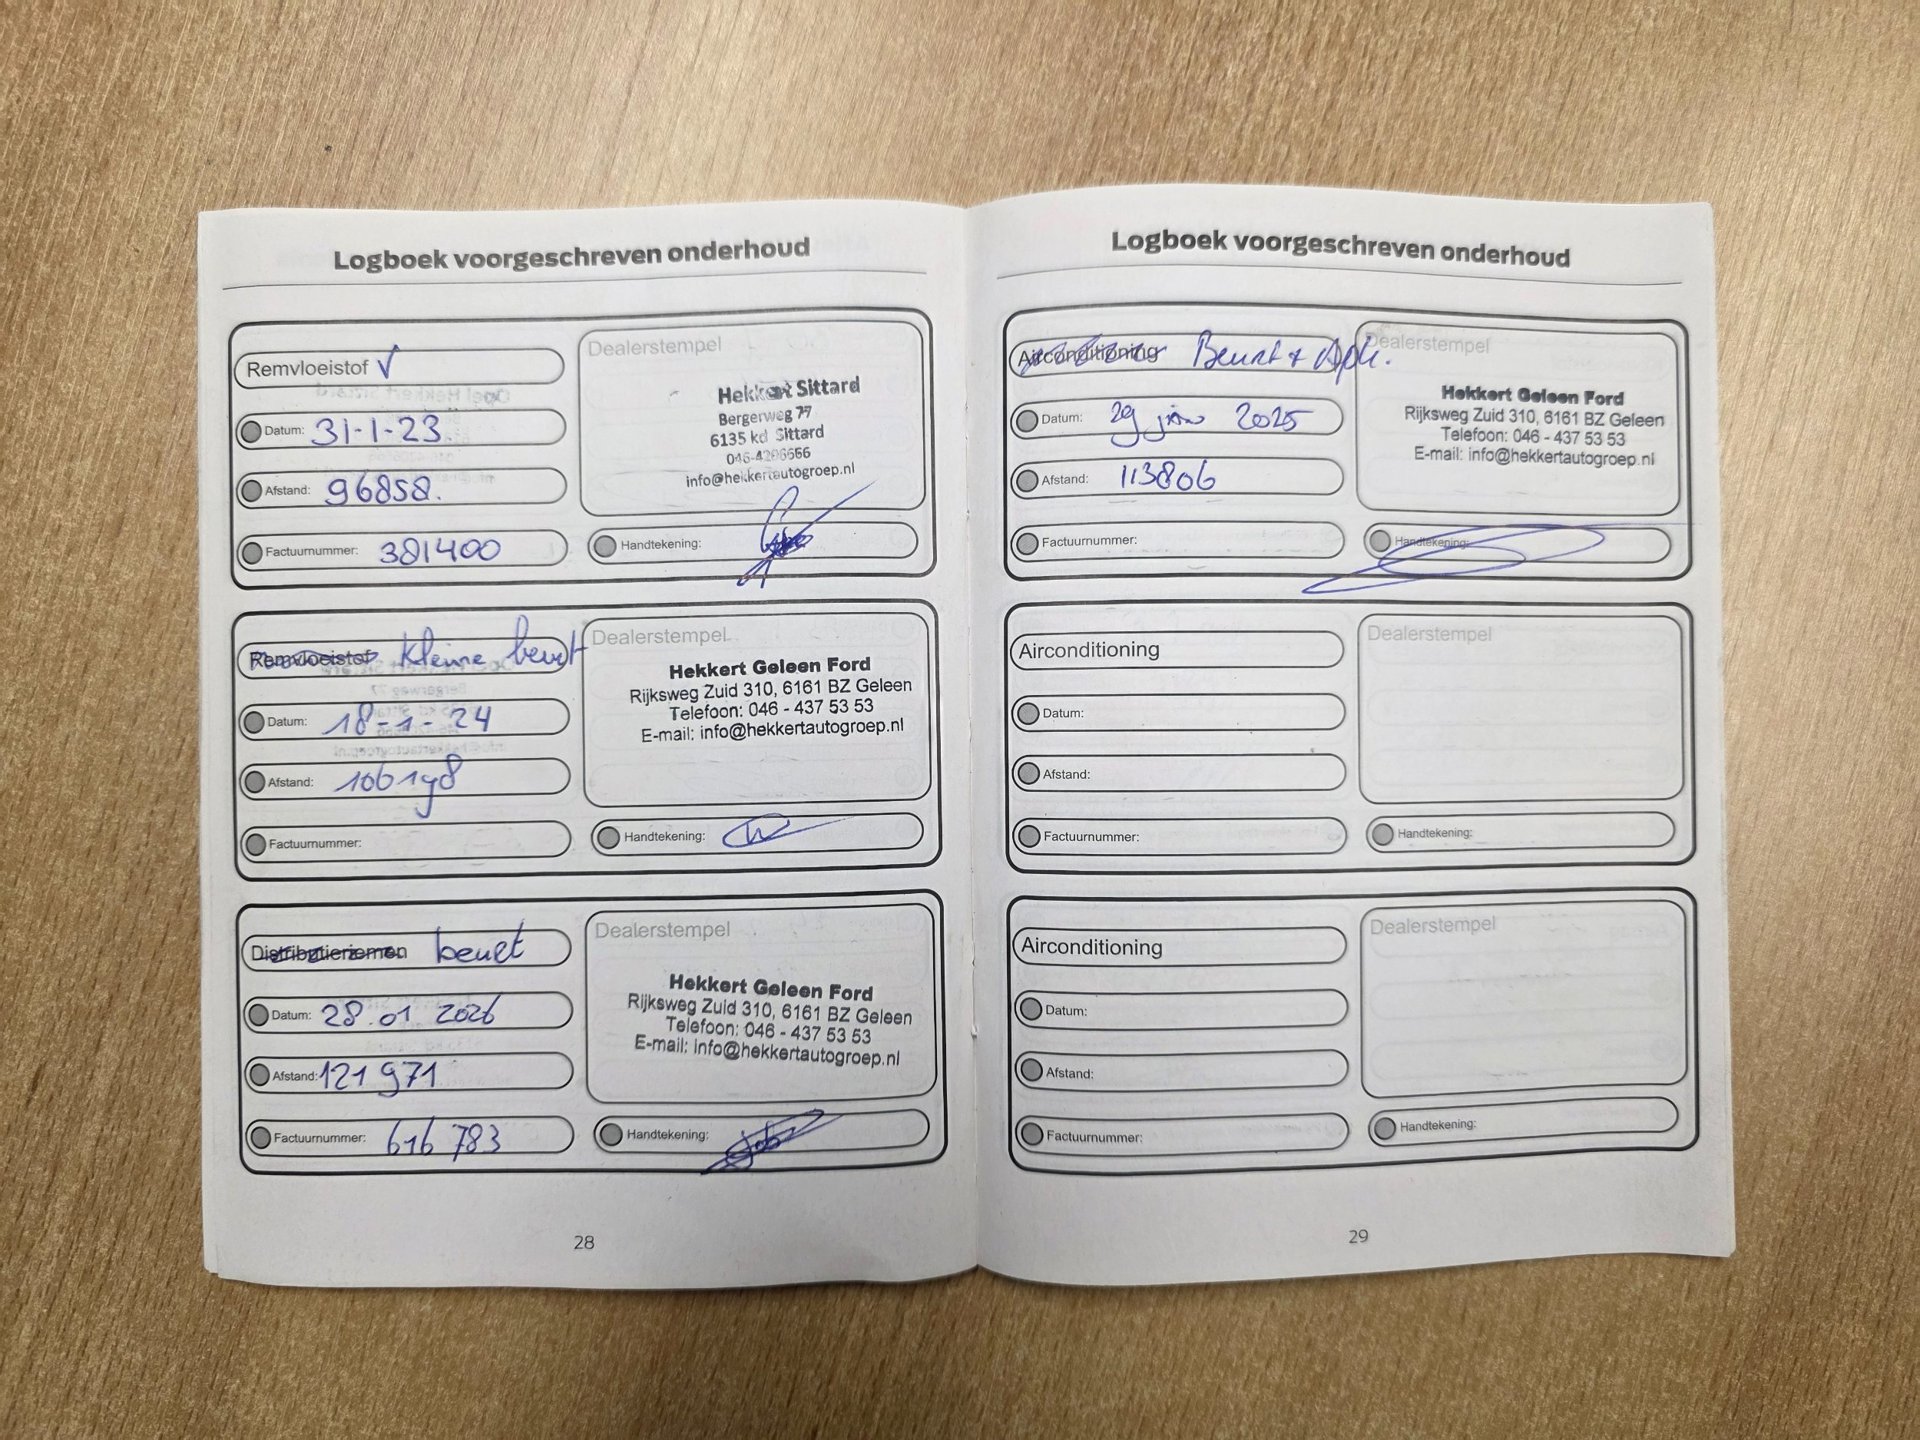 Logboek voorgeschreven onderhoud
Remvloeistof V
Dealerstempel
Hekkert Sittard
Bergerweg 77
6135 kd Sittard
046-4206656
info@hekkertautogroep.nl
Datum: 31-1-23.
Afstand: 96858.
Factuurnummer: 381400
Handtekening:
Remvloeistof kleine beurt
Dealerstempel
Hekkert Geleen Ford
Rijksweg Zuid 310, 6161 BZ Geleen
Telefoon: 046 - 437 53 53
E-mail: info@hekkertautogroep.nl
Datum: 18-1-24
Afstand: 106198
Factuurnummer:
Handtekening:
Distributieriemen beurt
Dealerstempel
Hekkert Geleen Ford
Rijksweg Zuid 310, 6161 BZ Geleen
Telefoon: 046 - 437 53 53
E-mail: info@hekkertautogroep.nl
Datum: 28.01 2026
Afstand: 121971
Factuurnummer: 616 783
Handtekening:
28
Logboek voorgeschreven onderhoud
Airconditioning Beurt + Apk.
Dealerstempel
Hekkert Geleen Ford
Rijksweg Zuid 310, 6161 BZ Geleen
Telefoon: 046 - 437 53 53
E-mail: info@hekkertautogroep.nl
Datum: 29 jan 2025
Afstand: 113806
Factuurnummer:
Handtekening:
Airconditioning
Dealerstempel
Datum:
Afstand:
Factuurnummer:
Handtekening:
Airconditioning
Dealerstempel
Datum:
Afstand:
Factuurnummer:
Handtekening:
29